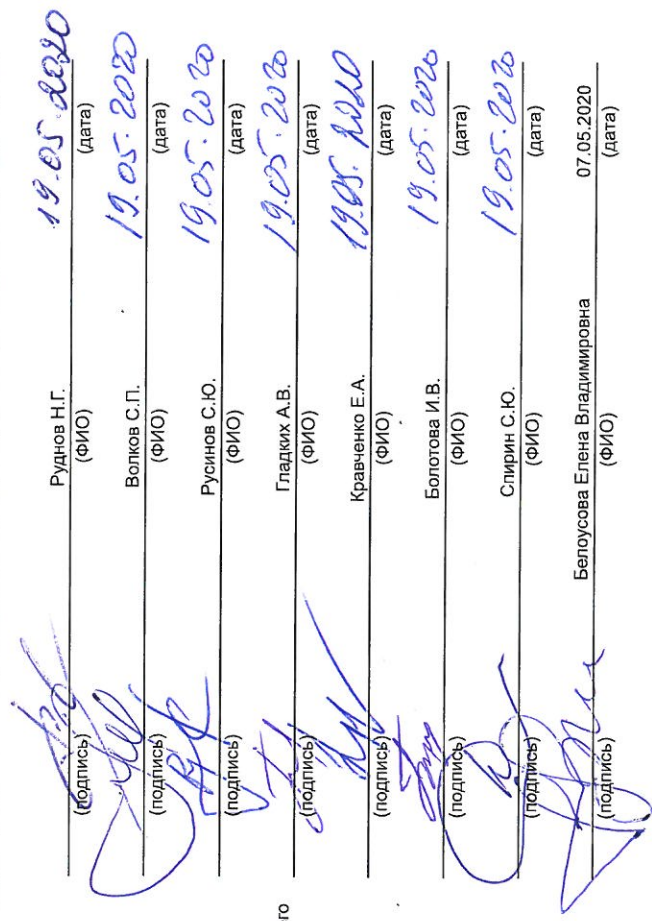 Руднов Н.Г. 19.05.2020
(подпись) (ФИО) (дата)
Волков С.П. 19.05.2020
(подпись) (ФИО) (дата)
Русинов С.Ю. 19.05.2020
(подпись) (ФИО) (дата)
Гладких А.В. 19.05.2020
(подпись) (ФИО) (дата)
Кравченко Е.А. 19.05.2020
(подпись) (ФИО) (дата)
Болотова И.В. 19.05.2020
(подпись) (ФИО) (дата)
Спирин С.Ю. 19.05.2020
(подпись) (ФИО) (дата)
Белоусова Елена Владимировна 07.05.2020
(подпись) (ФИО) (дата)